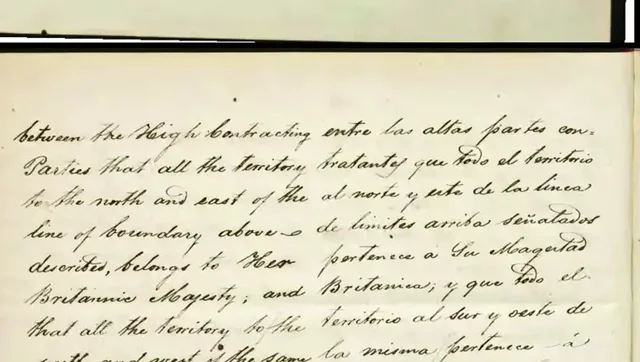 between the High Contracting
Parties that all the territory
to the north and east of the
line of boundary above
described, belongs to Her
Britannic Majesty; and
that all the territory to the
south and west of the same
entre las altas partes con=
tratantes que todo el territorio
al norte y este de la linea
de limites arriba señalados
pertenece á Su Magestad
Britanica; y que todo el
territorio al sur y oeste de
la misma pertenece á